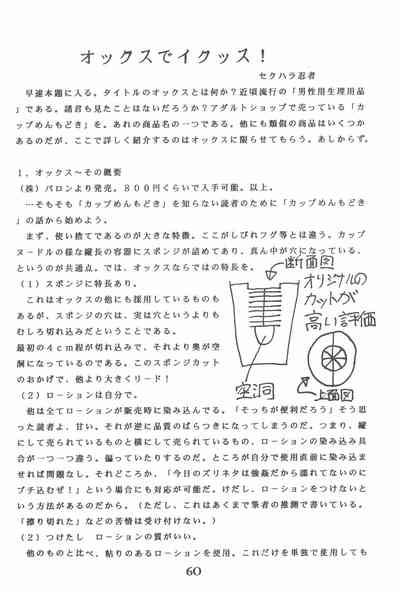 オックスでイクッス！
セクハラ忍者
早速本題に入る。タイトルのオックスとは何か？近頃流行の「男性用生理用品
」である。諸君も見たことはないだろうか？アダルトショップで売っている「カ
ップめんもどき」を。あれの商品名の一つである。他にも類似の商品はいくつか
あるのだが、ここで詳しく紹介するのはオックスに限らせてもらう。あしからず。
１、オックス～その概要
（株）バロンより発売。８００円くらいで入手可能。以上。
…そもそも「カップめんもどき」を知らない読者のために「カップめんもどき」
の話から始めよう。
まず、使い捨てであるのが大きな特徴。ここがしびれフグ等とは違う。カップ
ヌードルの様な縦長の容器にスポンジが詰めてあり、真ん中が穴になっている、
というのが共通点。では、オックスならではの特長を。
（１）スポンジに特長あり。
これはオックスの他にも採用しているものも
あるが、スポンジの穴は、実は穴というよりも
むしろ切れ込みだということである。
最初の４ｃｍ程が切れ込みで、それより奥が空
洞になっているのである。このスポンジカット
のおかげで、他より大きくリード！
断面図
オリジナルの
カットが
高い評価
空洞
上面図
（２）ローションは自分で。
他は全てローションが販売時に染み込んでる。「そっちが便利だろう」そう思
った読者よ、甘い。それが逆に品質のばらつきになってしまうのだ。つまり、縦
にして売られているものと横にして売られているもの、ローションの染み込み具
合が一つ一つ違う。偏っていたりするのだ。ところが自分で使用直前に染み込ま
せれば問題なし。それどころか、「今日のズリネタは強姦だから濡れてないのに
ブチ込むぜ！」という場合にも対応が可能だ。けだし、ローションをつけないと
いう方法があるのだから。（ただし、これはあくまで筆者の推測で書いている。
「擦り切れた」などの苦情は受け付けない。）
（２）つけたし　ローションの質がいい。
他のものと比べ、粘りのあるローションを使用。これだけを単独で使用しても
60